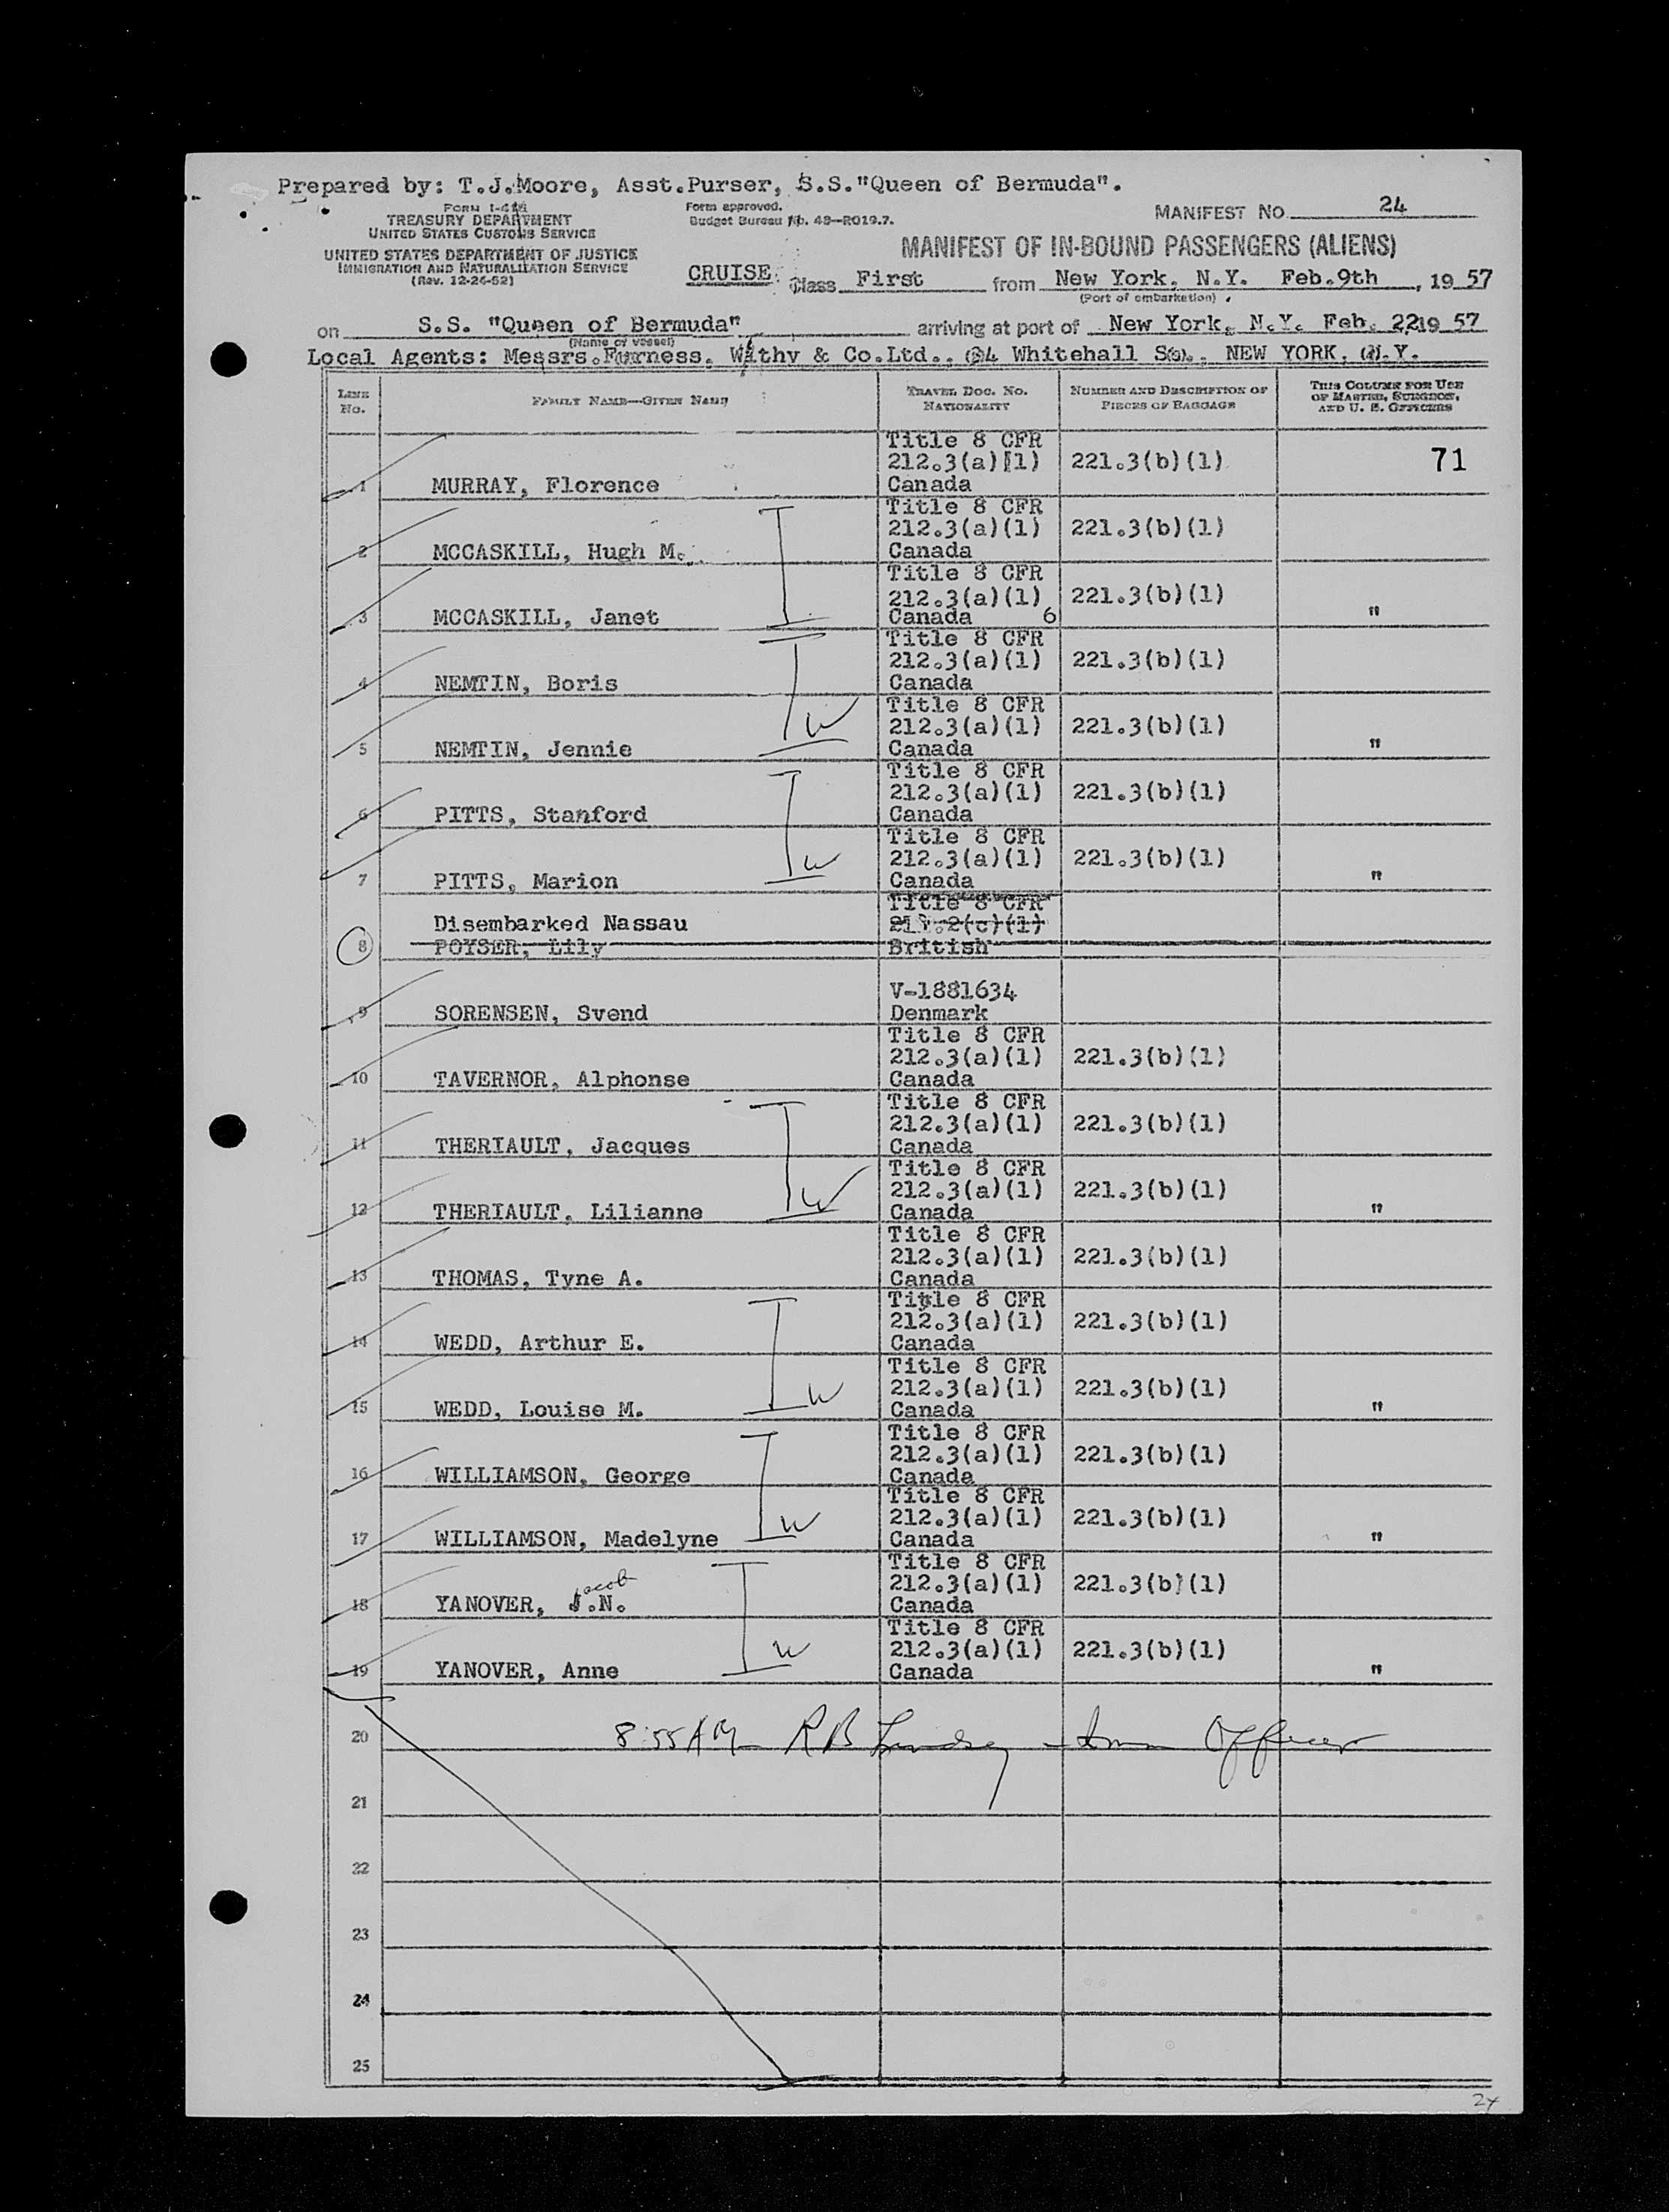 Prepared by: T.J.Moore, Asst.Purser, S.S."Queen of Bermuda".
FORM I-418
TREASURY DEPARTMENT
UNITED STATES CUSTOMS SERVICE
UNITED STATES DEPARTMENT OF JUSTICE
IMMIGRATION AND NATURALIZATION SERVICE
(Rev. 12-24-52)
Form approved.
Budget Bureau No. 43—R019.7.
MANIFEST NO. 24
MANIFEST OF IN-BOUND PASSENGERS (ALIENS)
CRUISE Class First from New York, N.Y. Feb.9th, 19 57
(Port of embarkation)
on S.S. "Queen of Bermuda" arriving at port of New York, N.Y. Feb. 22 19 57
(Name of vessel)
Local Agents: Messrs.Furness, Withy & Co.Ltd., 34 Whitehall St., NEW YORK, N.Y.
LINE No.
FAMILY NAME—GIVEN NAME
TRAVEL DOC. NO. NATIONALITY
NUMBER AND DESCRIPTION OF PIECES OF BAGGAGE
THIS COLUMN FOR USE OF MASTER, SURGEON, AND U. S. OFFICERS
Title 8 CFR
212.3(a)(1) 221.3(b)(1) 71
1 MURRAY, Florence Canada
Title 8 CFR
212.3(a)(1) 221.3(b)(1)
2 MCCASKILL, Hugh M. Canada
Title 8 CFR
212.3(a)(1) 221.3(b)(1)
3 MCCASKILL, Janet Canada 6 "
Title 8 CFR
212.3(a)(1) 221.3(b)(1)
4 NEMTIN, Boris Canada
Title 8 CFR
W 212.3(a)(1) 221.3(b)(1)
5 NEMTIN, Jennie Canada "
Title 8 CFR
212.3(a)(1) 221.3(b)(1)
6 PITTS, Stanford Canada
Title 8 CFR
W 212.3(a)(1) 221.3(b)(1)
7 PITTS, Marion Canada "
Title 8 CFR
Disembarked Nassau
8 POYSER, Lily British
V-1881634
9 SORENSEN, Svend Denmark
Title 8 CFR
212.3(a)(1) 221.3(b)(1)
10 TAVERNOR, Alphonse Canada
Title 8 CFR
212.3(a)(1) 221.3(b)(1)
11 THERIAULT, Jacques Canada
Title 8 CFR
W 212.3(a)(1) 221.3(b)(1)
12 THERIAULT, Lilianne Canada "
Title 8 CFR
212.3(a)(1) 221.3(b)(1)
13 THOMAS, Tyne A. Canada
Title 8 CFR
212.3(a)(1) 221.3(b)(1)
14 WEDD, Arthur E. Canada
Title 8 CFR
W 212.3(a)(1) 221.3(b)(1)
15 WEDD, Louise M. Canada "
Title 8 CFR
212.3(a)(1) 221.3(b)(1)
16 WILLIAMSON, George Canada
Title 8 CFR
W 212.3(a)(1) 221.3(b)(1)
17 WILLIAMSON, Madelyne Canada "
Title 8 CFR
Jacob 212.3(a)(1) 221.3(b)(1)
18 YANOVER, J.N. Canada
Title 8 CFR
W 212.3(a)(1) 221.3(b)(1)
19 YANOVER, Anne Canada "
20 8:55 AM R B Lindsey Imm Officer
21
22
23
24
25
24